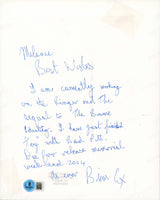 Melanie
Best Wishes
I was currently working
on the Ringer and The
sequel to The Bourne
Identity. I have just finished
Troy with Brad Pitt.
Due for release memorial
weekend 2004
as ever Brian Cox